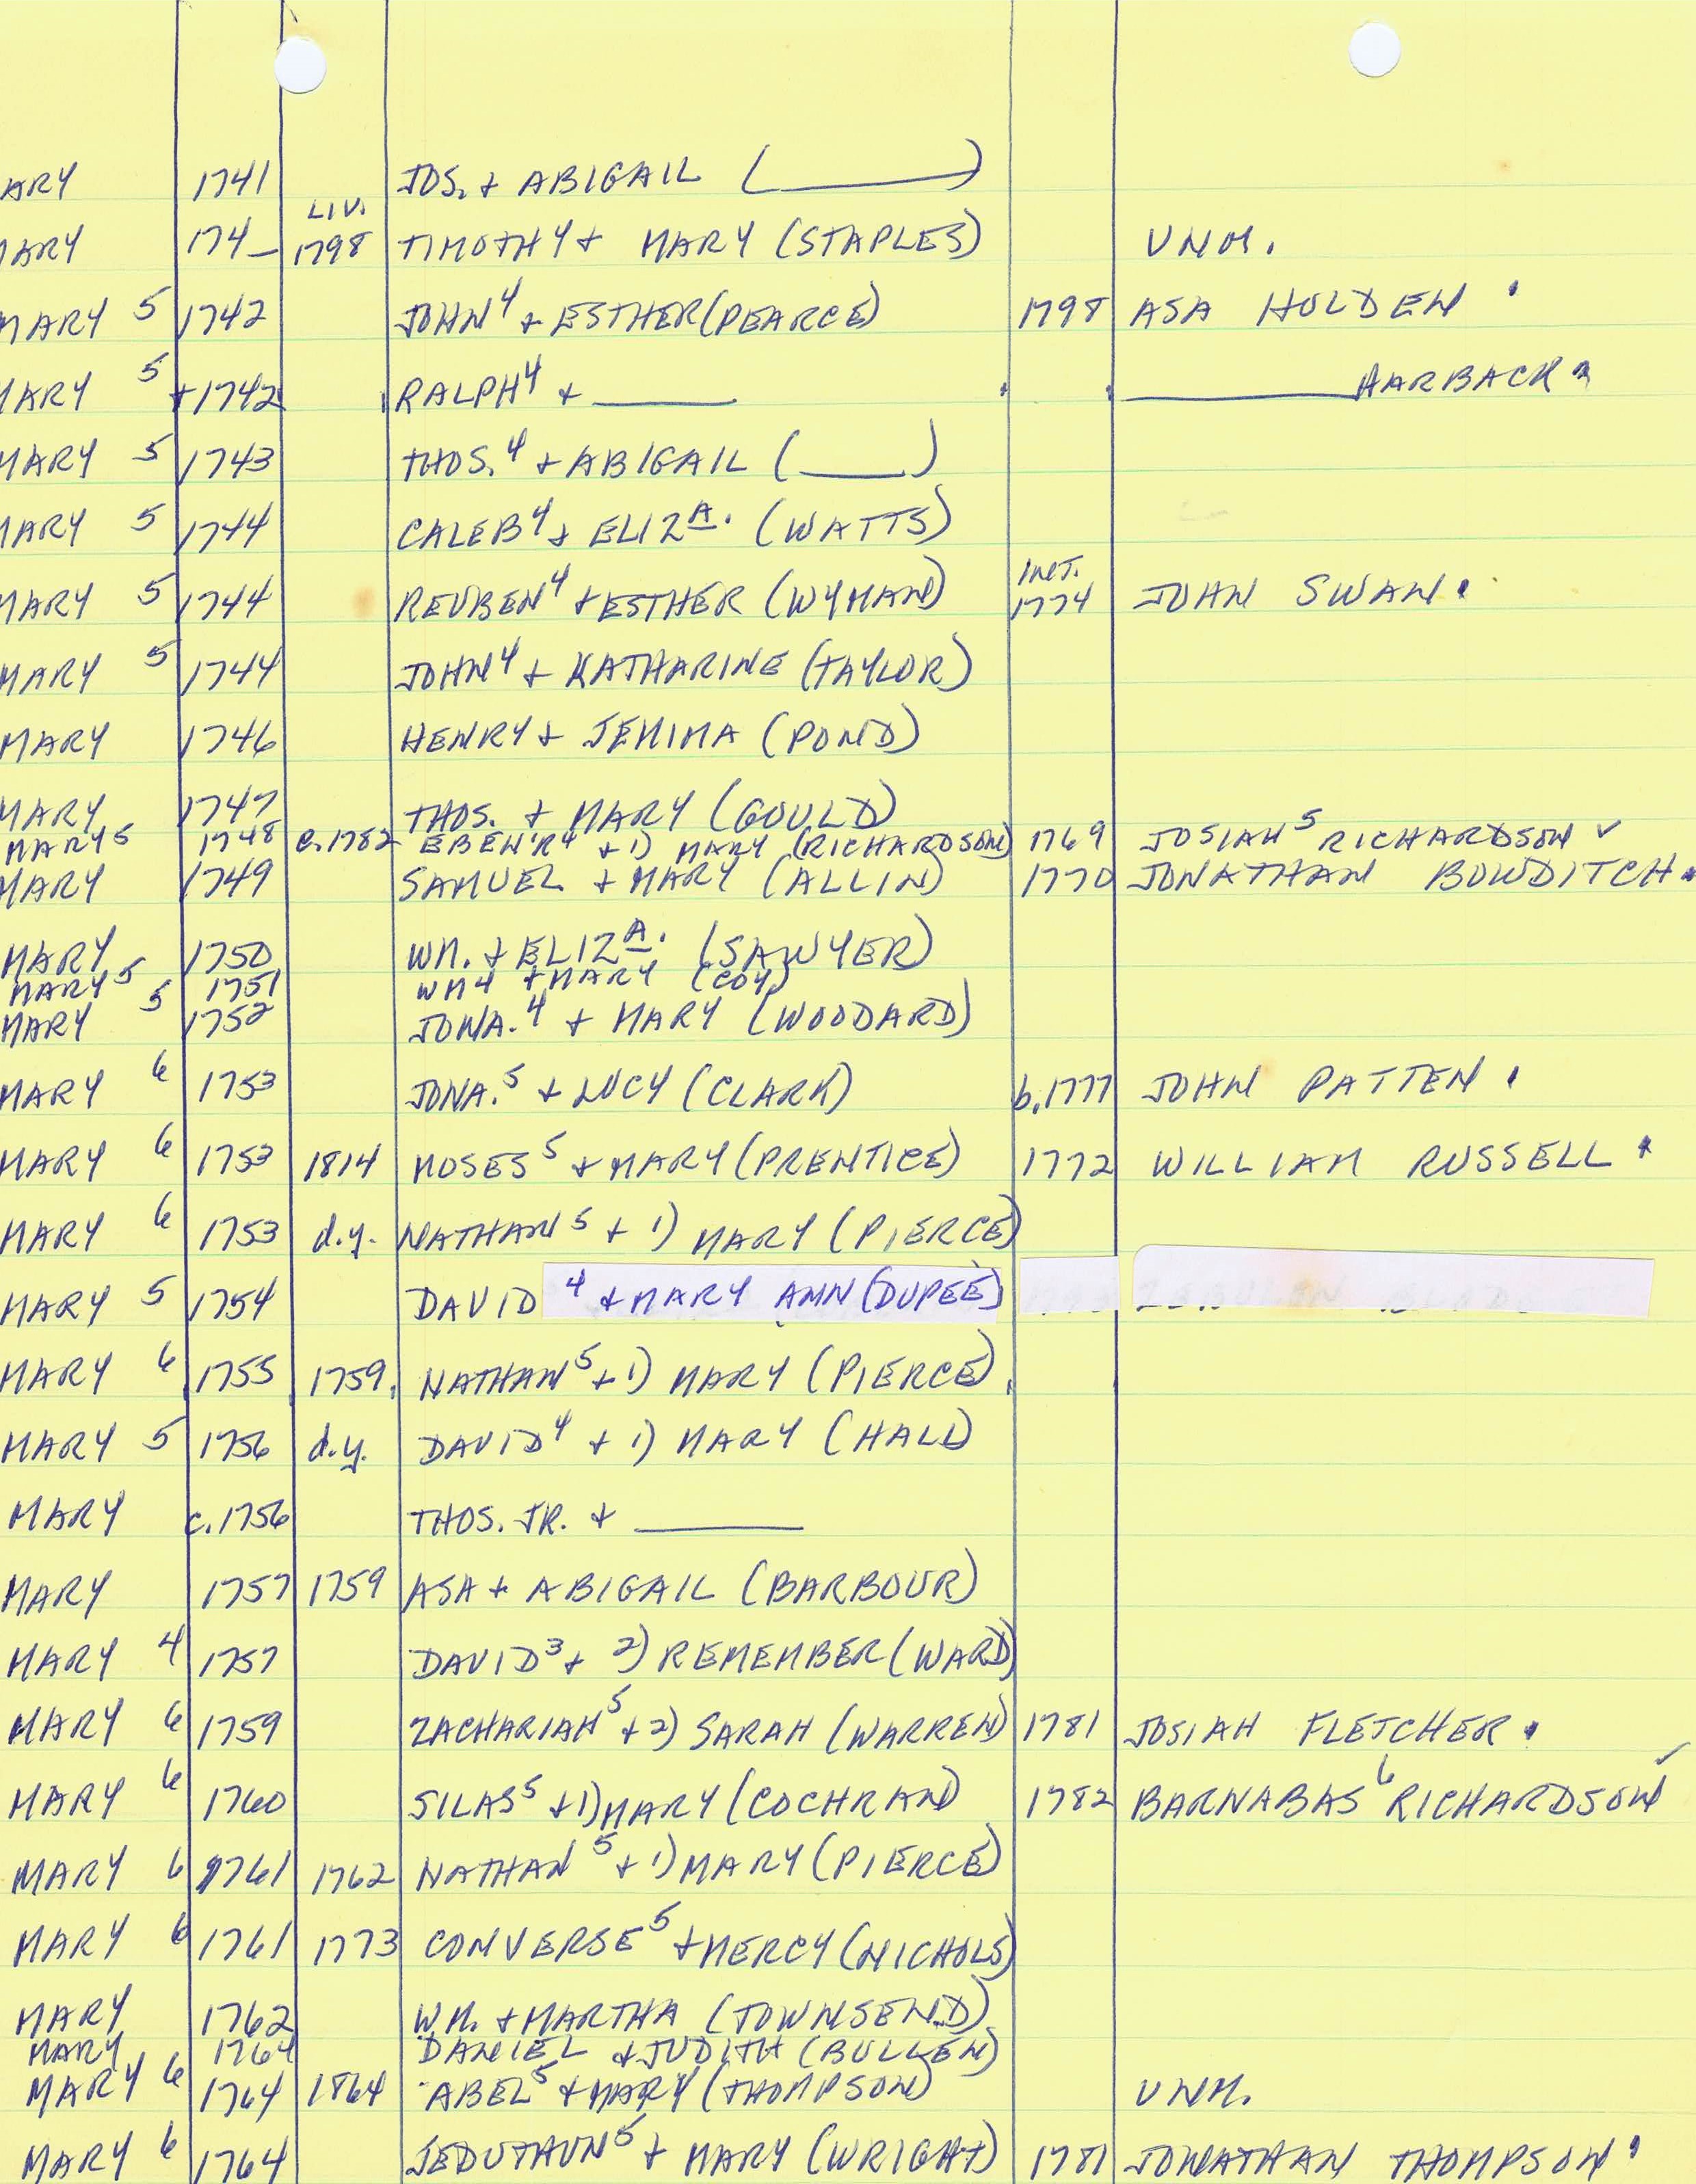 ARY 1741 JOS. + ABIGAIL (______)
MARY 174_ LIV. 1798 TIMOTHY + MARY (STAPLES) UNM.
MARY 5 1742 JOHN 4 + ESTHER (PEARCE) 1798 ASA HOLDEN .
MARY 5 +1742 RALPH 4 + ______ ______ HARBACK .
MARY 5 1743 THOS. 4 + ABIGAIL (____)
MARY 5 1744 CALEB 4 + ELIZA. (WATTS)
MARY 5 1744 REUBEN 4 + ESTHER (WYMAN) INT. 1774 JOHN SWAN .
MARY 5 1744 JOHN 4 + KATHARINE (TAYLOR)
MARY 1746 HENRY + JEMIMA (POND)
MARY 1747 THOS. + MARY (GOULD)
MARY 5 1748 c.1782 EBEN'R 4 + 1) MARY (RICHARDSON) 1769 JOSIAH 5 RICHARDSON ✓
MARY 1749 SAMUEL + MARY (ALLIN) 1770 JONATHAN BOWDITCH .
MARY 1750 WM. + ELIZA. (SAWYER)
MARY 5 1751 WM 4 + MARY (COY)
MARY 5 1752 JONA. 4 + MARY (WOODARD)
MARY 6 1753 JONA. 5 + LUCY (CLARK) b.1777 JOHN PATTEN .
MARY 6 1753 1814 MOSES 5 + MARY (PRENTICE) 1772 WILLIAM RUSSELL .
MARY 6 1753 d.y. NATHAN 5 + 1) MARY (PIERCE)
MARY 5 1754 DAVID 4 + MARY ANN (DUPEE)
MARY 6 1755 1759 NATHAN 5 + 1) MARY (PIERCE)
MARY 5 1756 d.y. DAVID 4 + 1) MARY (HALL)
MARY c.1756 THOS. JR. + ______
MARY 1757 1759 ASA + ABIGAIL (BARBOUR)
MARY 4 1757 DAVID 3 + 2) REMEMBER (WARD)
MARY 6 1759 ZACHARIAH 5 + 2) SARAH (WARREN) 1781 JOSIAH FLETCHER .
MARY 6 1760 SILAS 5 + 1) MARY (COCHRAN) 1782 BARNABAS 6 RICHARDSON ✓
MARY 6 1761 1762 NATHAN 5 + 1) MARY (PIERCE)
MARY 6 1761 1773 CONVERSE 5 + MERCY (NICHOLS)
MARY 1762 WM. + MARTHA (TOWNSEND)
MARY 1764 DANIEL + JUDITH (BULLEN)
MARY 6 1764 1864 ABEL 5 + MARY (THOMPSON) UNM.
MARY 6 1764 JEDUTHUN 5 + MARY (WRIGHT) 1781 JONATHAN THOMPSON .